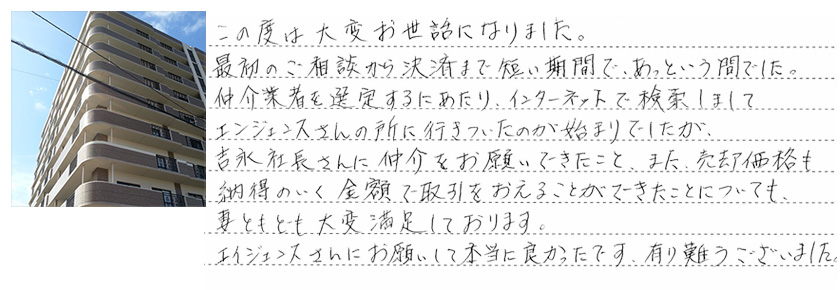 この度は大変お世話になりました。
最初のご相談から決済まで短い期間で、あっという間でした。
仲介業者を選定するにあたり、インターネットで検索しまして
エンジェンスさんの所に行きついたのが始まりでしたが、
吉永社長さんに仲介をお願いできたこと、また、売却価格も
納得のいく金額で取引をおえることができたことについても、
妻ともども大変満足しております。
エイジェンスさんにお願いして本当に良かったです、有り難うございました。